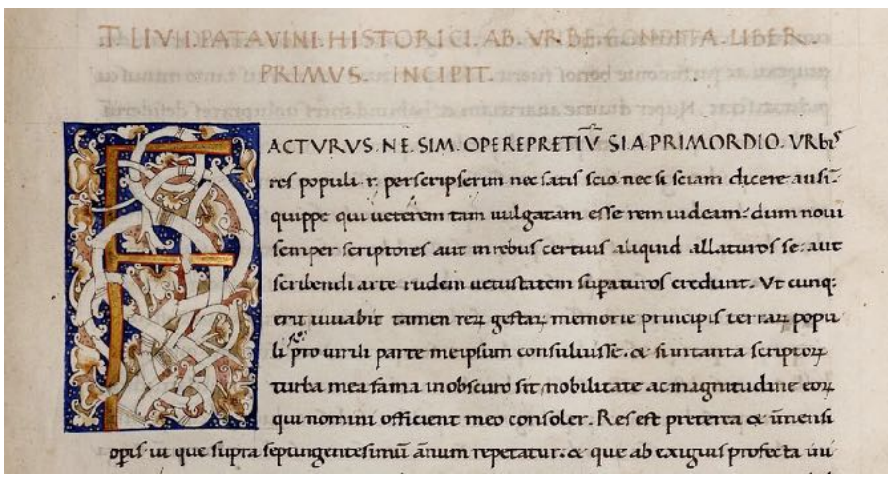 T. LIVII. PATAVINI. HISTORICI. AB. VRBE. CONDITA. LIBER.
PRIMVS. INCIPIT.
FACTVRVS. NE. SIM. OPEREPRETIV̄ SI A PRIMORDIO. VRbiſ
res populi. r. perſcripſerim nec ſatiſ ſcio nec ſi ſciam dicere auſi
quippe qui ueterem tam uulgatam eſſe rem uideam: dum noui
ſemper ſcriptoreſ aut in rebuſ certiuſ aliquid allaturoſ ſe: aut
ſcribendi arte rudem uetuſtatem ſuꝑaturoſ credunt. Vt cunq:
erit iuuabit tamen reꝝ geſtaꝝ memorie principiſ terraꝝ popu
li pro uirili parte me ipſum conſuluiſſe. & ſi in tanta ſcriptoꝝ
turba mea fama in obſcuro ſit, nobilitate ac magnitudine eoꝝ
qui nomini officient meo conſoler. Reſ eſt preterea & īmenſi
opiſ ut que ſupra ſeptingenteſimū ānum repetatur. & que ab exiguiſ profecta ini